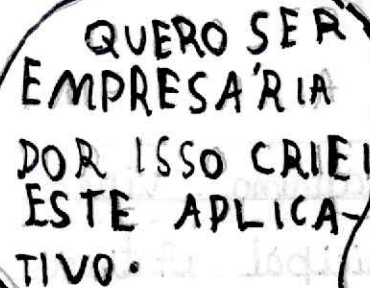 QUERO SER
EMPRESÁRIA
POR ISSO CRIEI
ESTE APLICA-
TIVO.